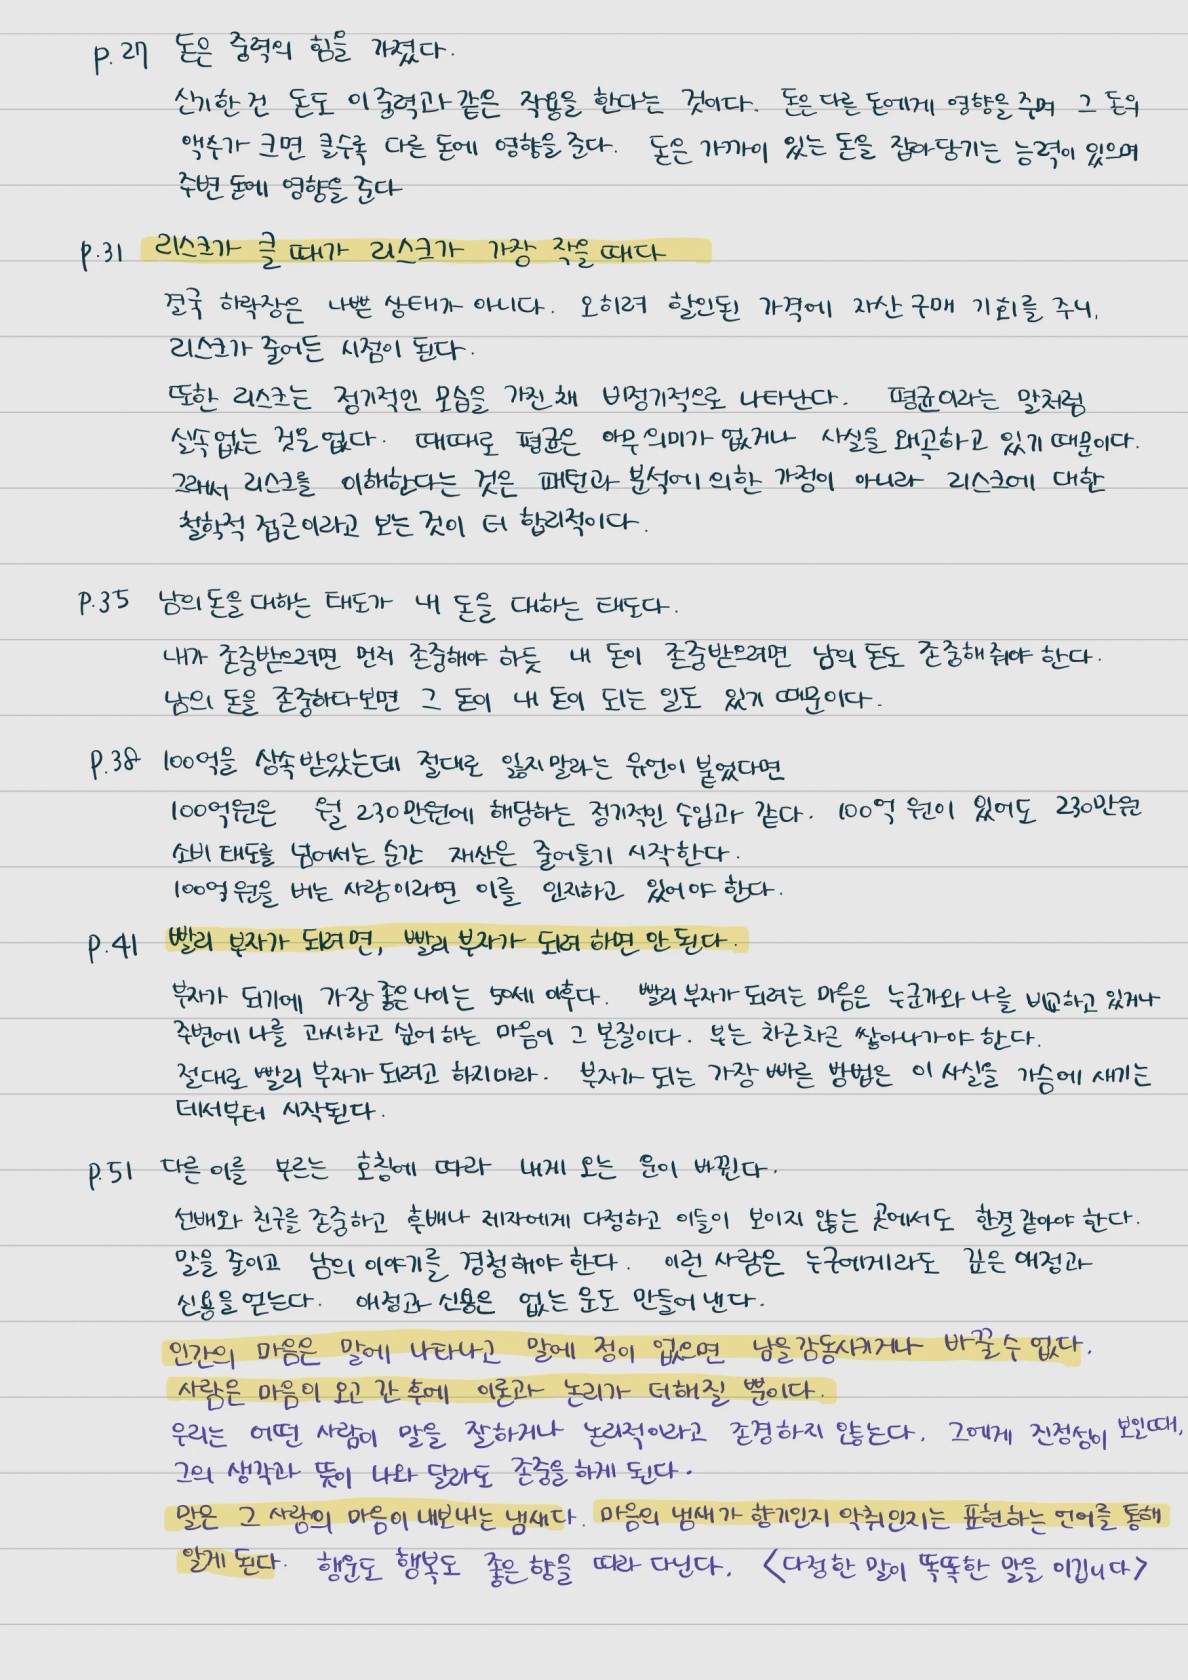 p.27 돈은 중력의 힘을 가졌다.
신기한 건 돈도 이 중력과 같은 작용을 한다는 것이다. 돈은 다른 돈에게 영향을 주며 그 돈의
액수가 크면 클수록 다른 돈에 영향을 준다. 돈은 가까이 있는 돈을 잡아당기는 능력이 있으며
주변 돈에 영향을 준다
p.31 리스크가 클 때가 리스크가 가장 작을 때다
결국 하락장은 나쁜 상태가 아니다. 오히려 할인된 가격에 자산 구매 기회를 주니,
리스크가 줄어든 시점이 된다.
또한 리스크는 정기적인 모습을 가진 채 비정기적으로 나타난다. 평균이라는 말처럼
실속 없는 것은 없다. 때때로 평균은 아무 의미가 없거나 사실을 왜곡하고 있기 때문이다.
그래서 리스크를 이해한다는 것은 패턴과 분석에 의한 가정이 아니라 리스크에 대한
철학적 접근이라고 보는 것이 더 합리적이다.
p.35 남의 돈을 대하는 태도가 내 돈을 대하는 태도다.
내가 존중받으려면 먼저 존중해야 하듯 내 돈이 존중받으려면 남의 돈도 존중해줘야 한다.
남의 돈을 존중하다보면 그 돈이 내 돈이 되는 일도 있기 때문이다.
p.38 100억을 상속받았는데 절대로 잃지말라는 유언이 붙었다면
100억원은 월 230만원에 해당하는 정기적인 수입과 같다. 100억 원이 있어도 230만원
소비 태도를 넘어서는 순간 재산은 줄어들기 시작한다.
100억원을 버는 사람이라면 이를 인지하고 있어야 한다.
p.41 빨리 부자가 되려면, 빨리 부자가 되려 하면 안 된다.
부자가 되기에 가장 좋은 나이는 50세 이후다. 빨리 부자가 되려는 마음은 누군가와 나를 비교하고 있거나
주변에 나를 과시하고 싶어 하는 마음이 그 본질이다. 부는 차근차근 쌓아나가야 한다.
절대로 빨리 부자가 되려고 하지마라. 부자가 되는 가장 빠른 방법은 이 사실을 가슴에 새기는
데서부터 시작된다.
p.51 다른 이를 부르는 호칭에 따라 내게 오는 운이 바뀐다.
선배와 친구를 존중하고 후배나 제자에게 다정하고 이들이 보이지 않는 곳에서도 한결같아야 한다.
말을 줄이고 남의 이야기를 경청해야 한다. 이런 사람은 누구에게라도 깊은 애정과
신용을 얻는다. 애정과 신용은 없는 운도 만들어 낸다.
인간의 마음은 말에 나타나고 말에 정이 없으면 남을 감동시키거나 바꿀 수 없다.
사람은 마음이 오고 간 후에 이론과 논리가 더해질 뿐이다.
우리는 어떤 사람이 말을 잘하거나 논리적이라고 존경하지 않는다. 그에게 진정성이 보일때,
그의 생각과 뜻이 나와 달라도 존중을 하게 된다.
말은 그 사람의 마음이 내보내는 냄새다. 마음의 냄새가 향기인지 악취인지는 표현하는 언어를 통해
알게 된다. 행운도 행복도 좋은 향을 따라 다닌다. <다정한 말이 똑똑한 말을 이깁니다>